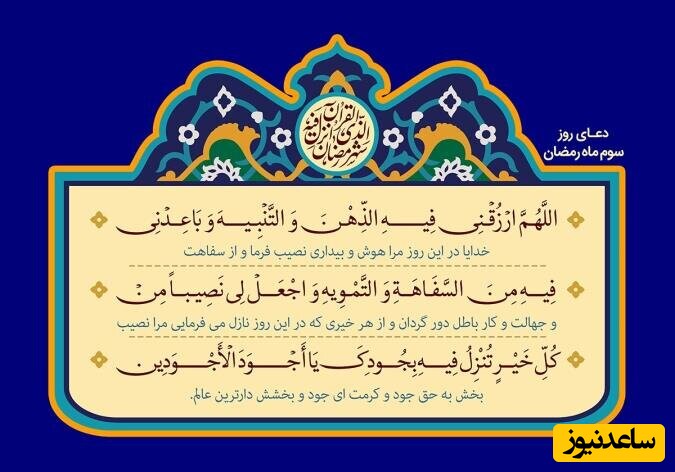 شهر رمضان الذی انزل فیه القرآن
دعــای روز
سوم ماه رمضان
اللَّهُمَّ ارْزُقْنِی فِیهِ الذِّهْنَ وَ التَّنْبِیهَ وَ بَاعِدْنِی
خدایا در این روز مرا هوش و بیداری نصیب فرما و از سفاهت
فِیهِ مِنَ السَّفَاهَةِ وَ التَّمْوِیهِ وَ اجْعَلْ لِی نَصِیباً مِنْ
و جهالت و کار باطل دور گردان و از هر خیری که در این روز نازل می فرمایی مرا نصیب
کُلِّ خَیْرٍ تُنْزِلُ فِیهِ بِجُودِکَ یَا أَجْوَدَ الْأَجْوَدِینَ
بخش به حق جود و کرمت ای جود و بخشش دارترین عالم.
ساعدنیوز